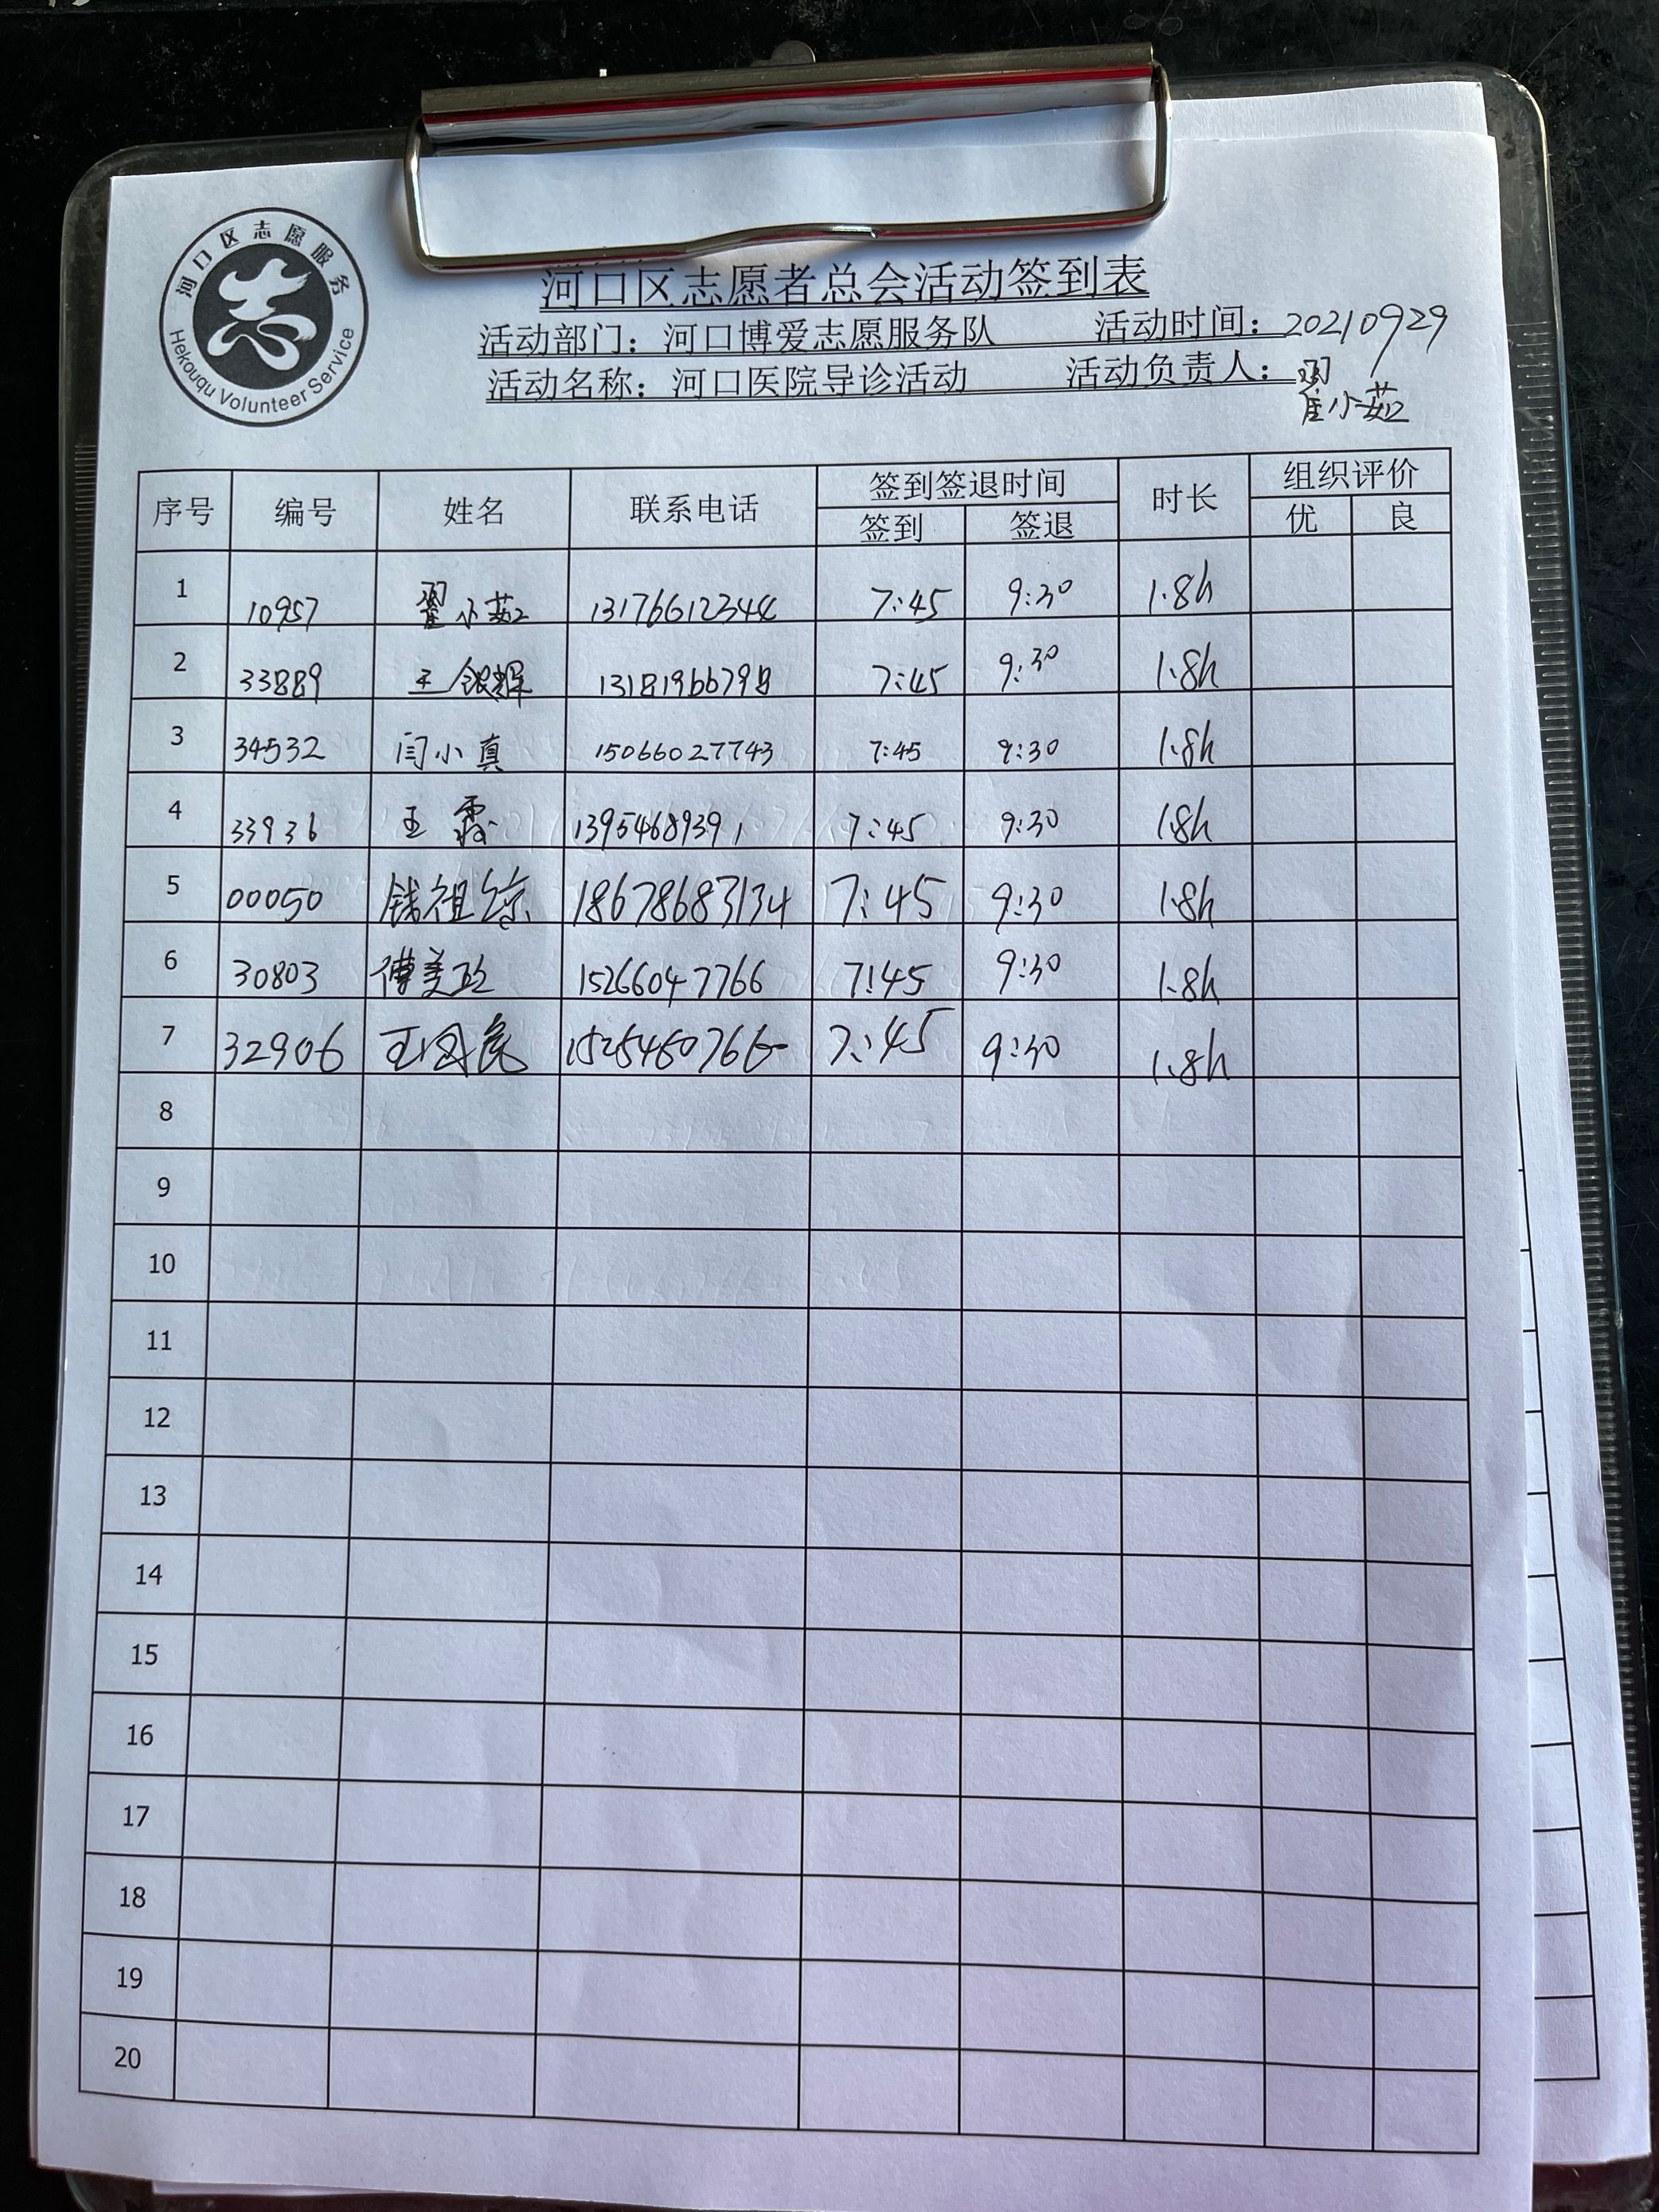 河口区志愿服务
Hekouqu Volunteer Service
河口区志愿者总会活动签到表
活动部门：河口博爱志愿服务队 活动时间：20210929
活动名称：河口医院导诊活动 活动负责人：翟小茹
序号 编号 姓名 联系电话 签到签退时间 时长 组织评价
签到 签退 优 良
1 10957 翟小茹 13176612344 7:45 9:30 1.8h
2 33889 王银辉 1318196679 7:45 9:30 1.8h
3 34532 闫小真 15066027743 7:45 9:30 1.8h
4 33936 王霞 13954689391 7:45 9:30 1.8h
5 00050 钱祖琼 18678683134 7:45 9:30 1.8h
6 30803 傅美玲 15266047766 7:45 9:30 1.8h
7 32906 王国 7:45 9:30 1.8h
8
9
10
11
12
13
14
15
16
17
18
19
20